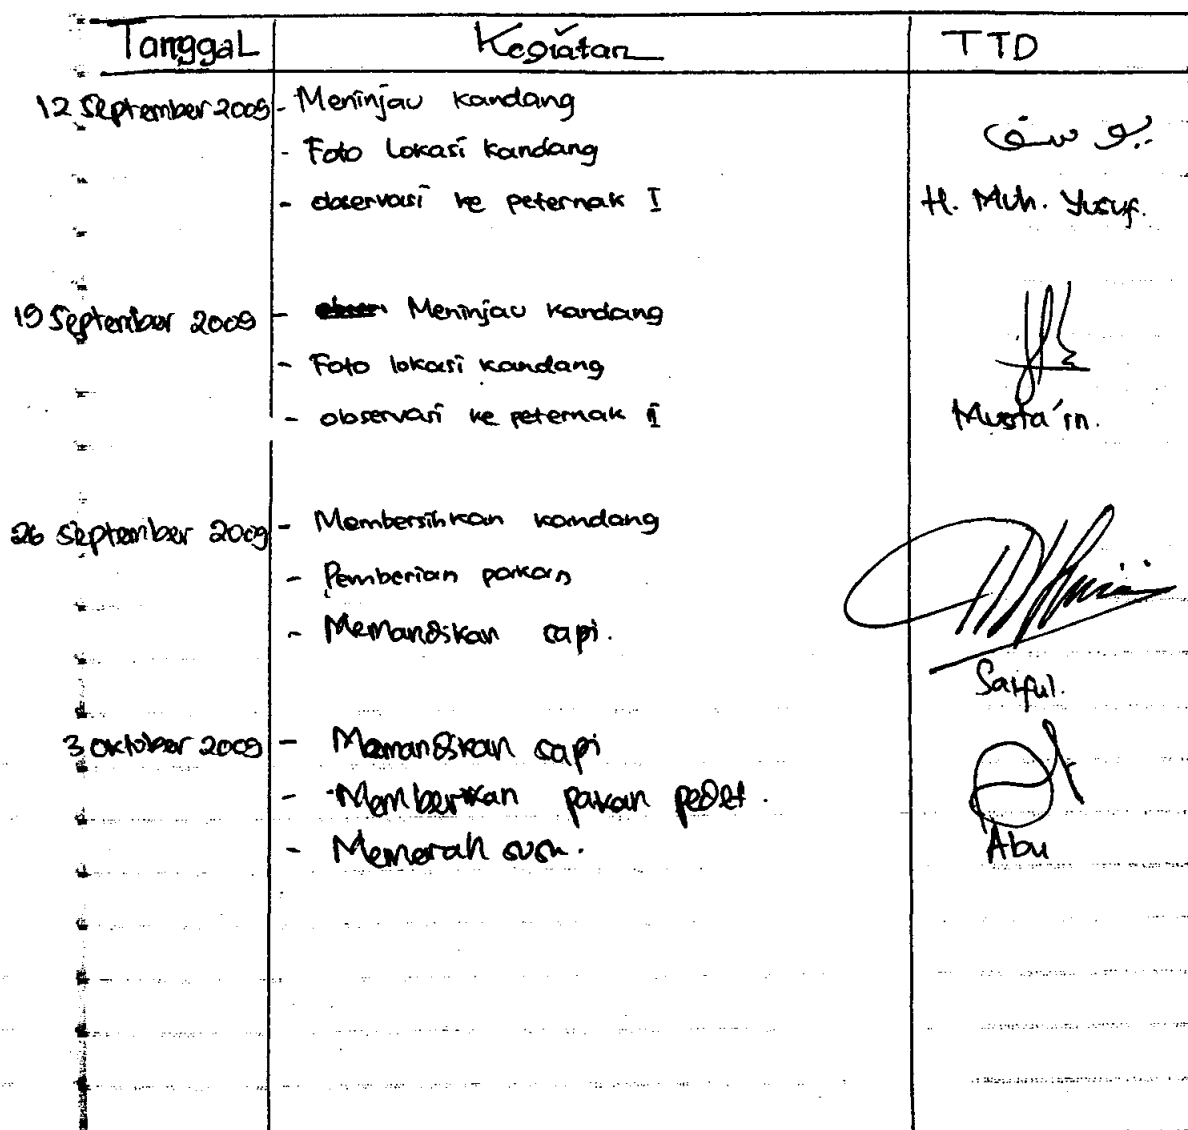 Tanggal Kegiatan TTD
12 September 2009 - Meninjau kandang
- Foto Lokasi kandang
يوسف
- observasi ke peternak I H. Muh. Yusuf.
19 September 2009 - Meninjau kandang
- Foto lokasi kandang
- observasi ke peternak II Musta'in.
26 September 2009 - Membersihkan kandang
- Pemberian pakan
- Memandikan sapi.
Saiful.
3 Oktober 2009 - Memandikan sapi
- Memberikan pakan pedet.
- Memerah susu. Abu